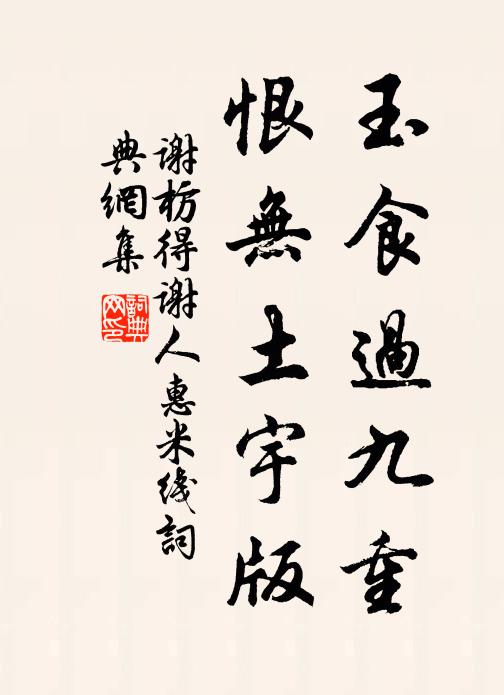 玉食過九重
恨無土宇版
謝枋得謝人惠米綫詞
典網集
詞典
网印